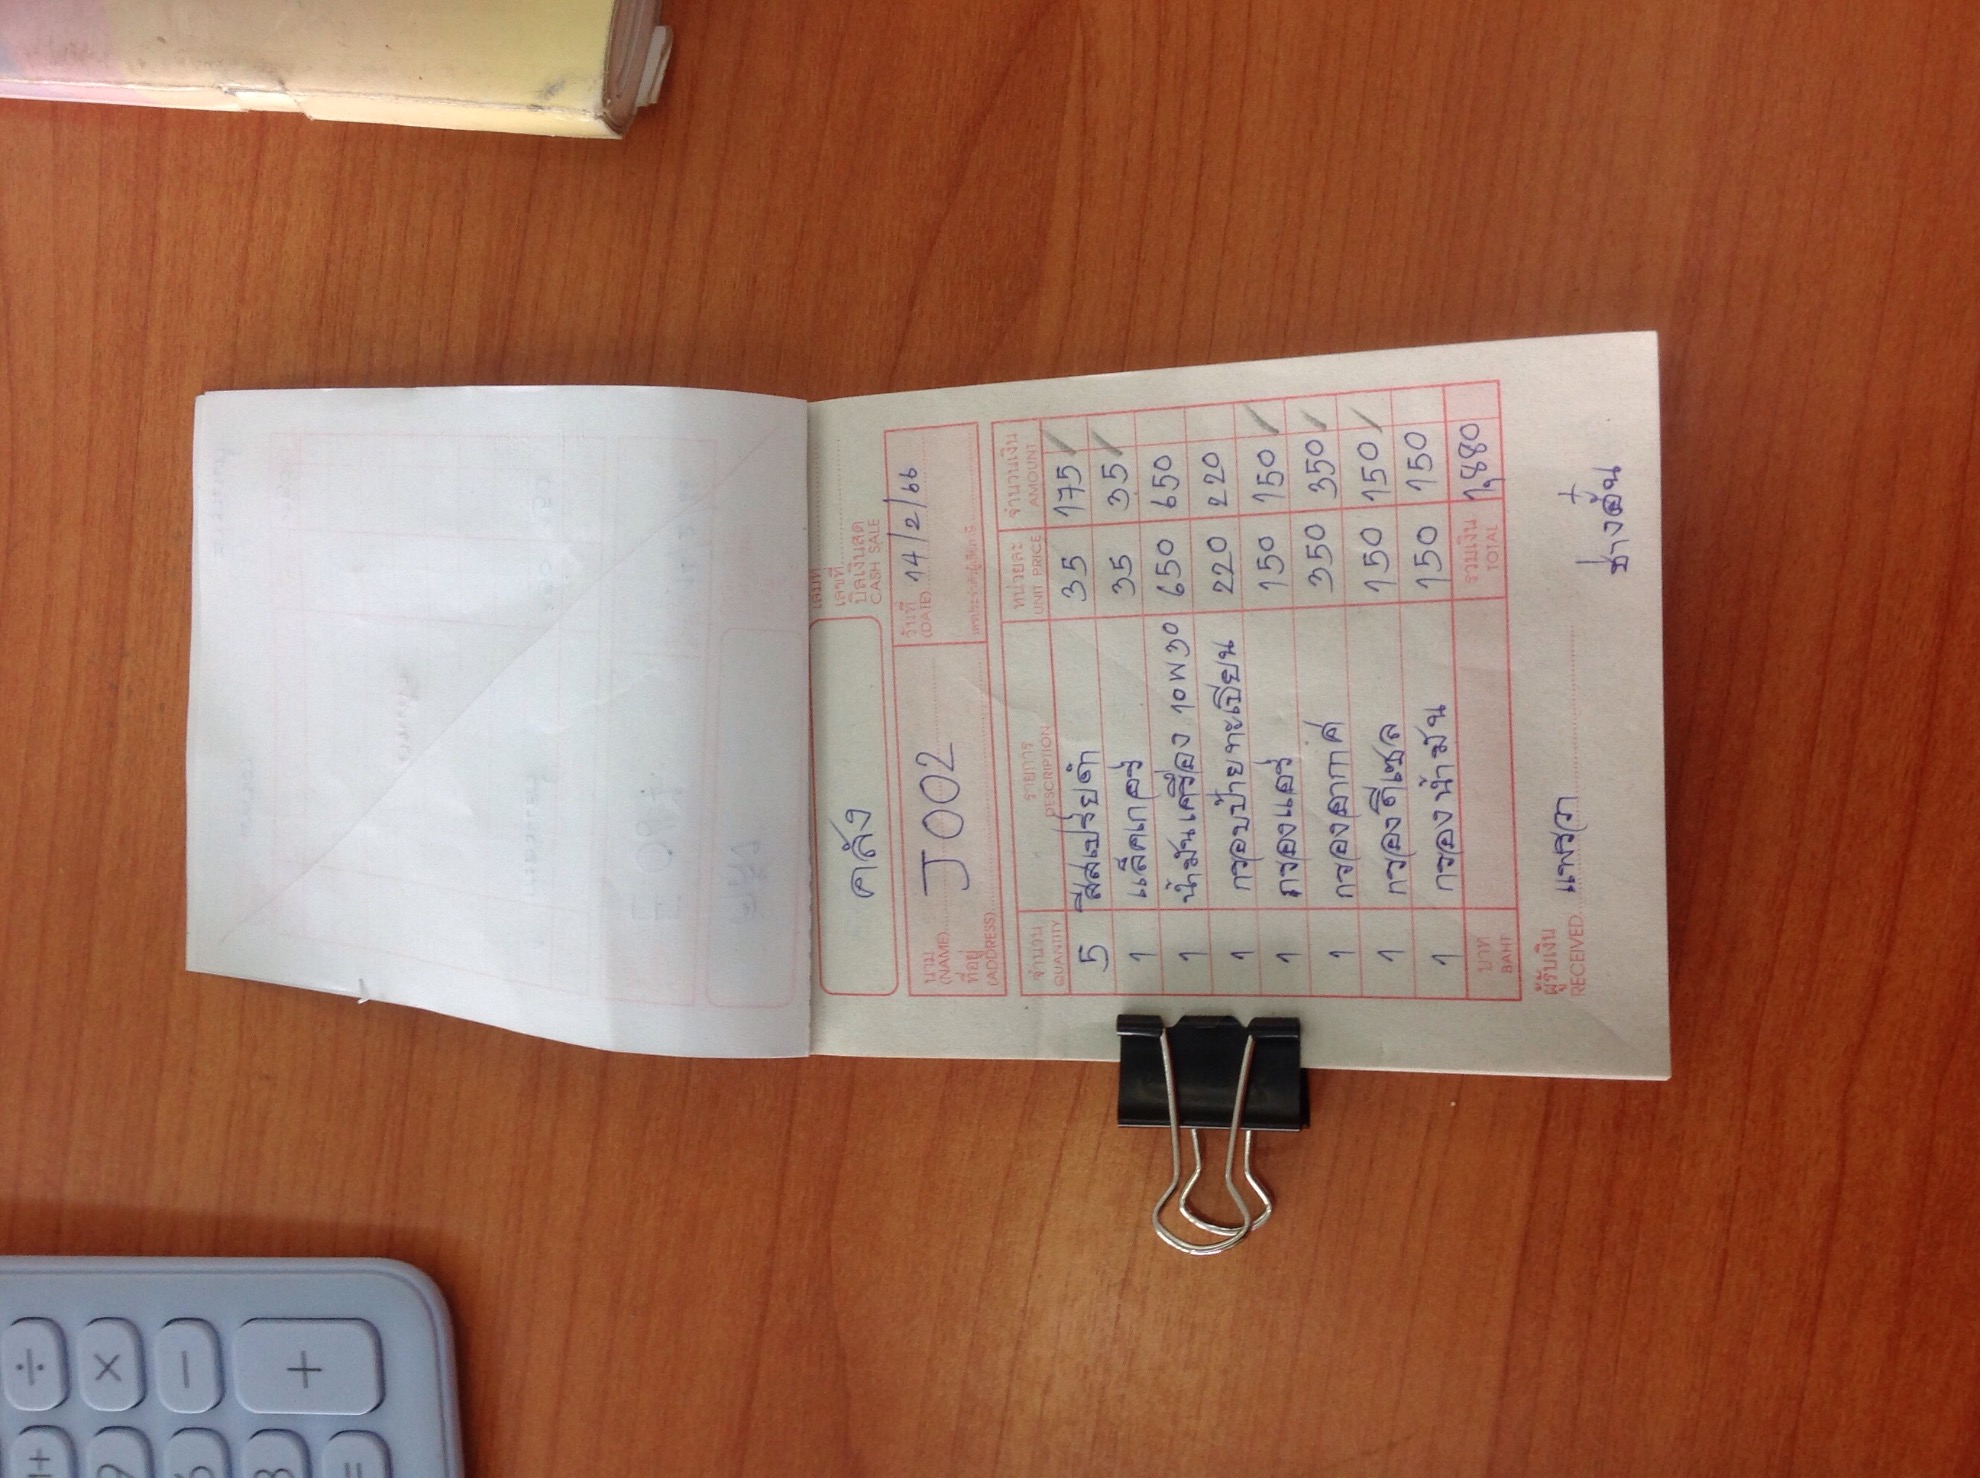 คลัง
เล่มที่
เลขที่
บิลเงินสด
CASH SALE
นาม (NAME) J002
วันที่ (DATE) 14/2/66
ที่อยู่ (ADDRESS)
จำนวน QUANTITY รายการ DESCRIPTION หน่วยละ UNIT PRICE จำนวนเงิน AMOUNT
5 สีสเปรย์ดำ 35 175
1 แล็คเกอร์ 35 35
1 น้ำมันเครื่อง 10W30 650 650
1 กรอบป้ายทะเบียน 220 220
1 กรองแอร์ 150 150
1 กรองอากาศ 350 350
1 กรองดีเซล 150 150
1 กรองน้ำมัน 150 150
บาท BAHT รวมเงิน TOTAL 1,880
ผู้รับเงิน RECEIVED แพรวา
ช่างลั่น
÷ × − +